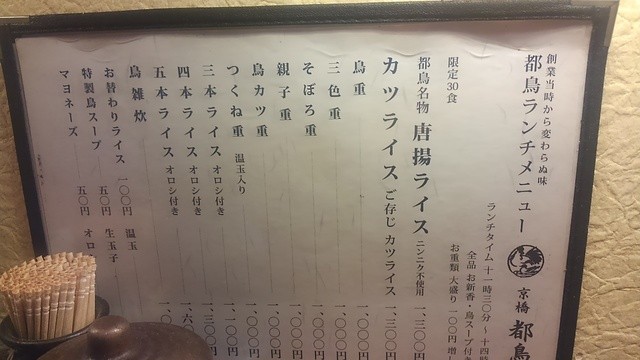 創業当時から変わらぬ味
都鳥ランチメニュー
京橋 都鳥
ランチタイム 十一時三〇分～十四時
全品 お新香・鳥スープ付き
お重類 大盛り 一〇〇円 増
限定30食
都鳥名物 唐揚ライス ニンニク不使用 一、三〇〇円
カツライス ご存じ カツライス 一、三〇〇円
鳥重 一、〇〇〇円
三色重 一、〇〇〇円
そぼろ重 一、〇〇〇円
親子重 一、〇〇〇円
鳥カツ重 一、〇〇〇円
つくね重 温玉入り 一、一〇〇円
三本ライス オロシ付き 一、三〇〇円
四本ライス オロシ付き
五本ライス オロシ付き
鳥雑炊
お替わりライス 一〇〇円 温玉
特製鳥スープ 五〇円 生玉子
マヨネーズ 五〇円 オロ